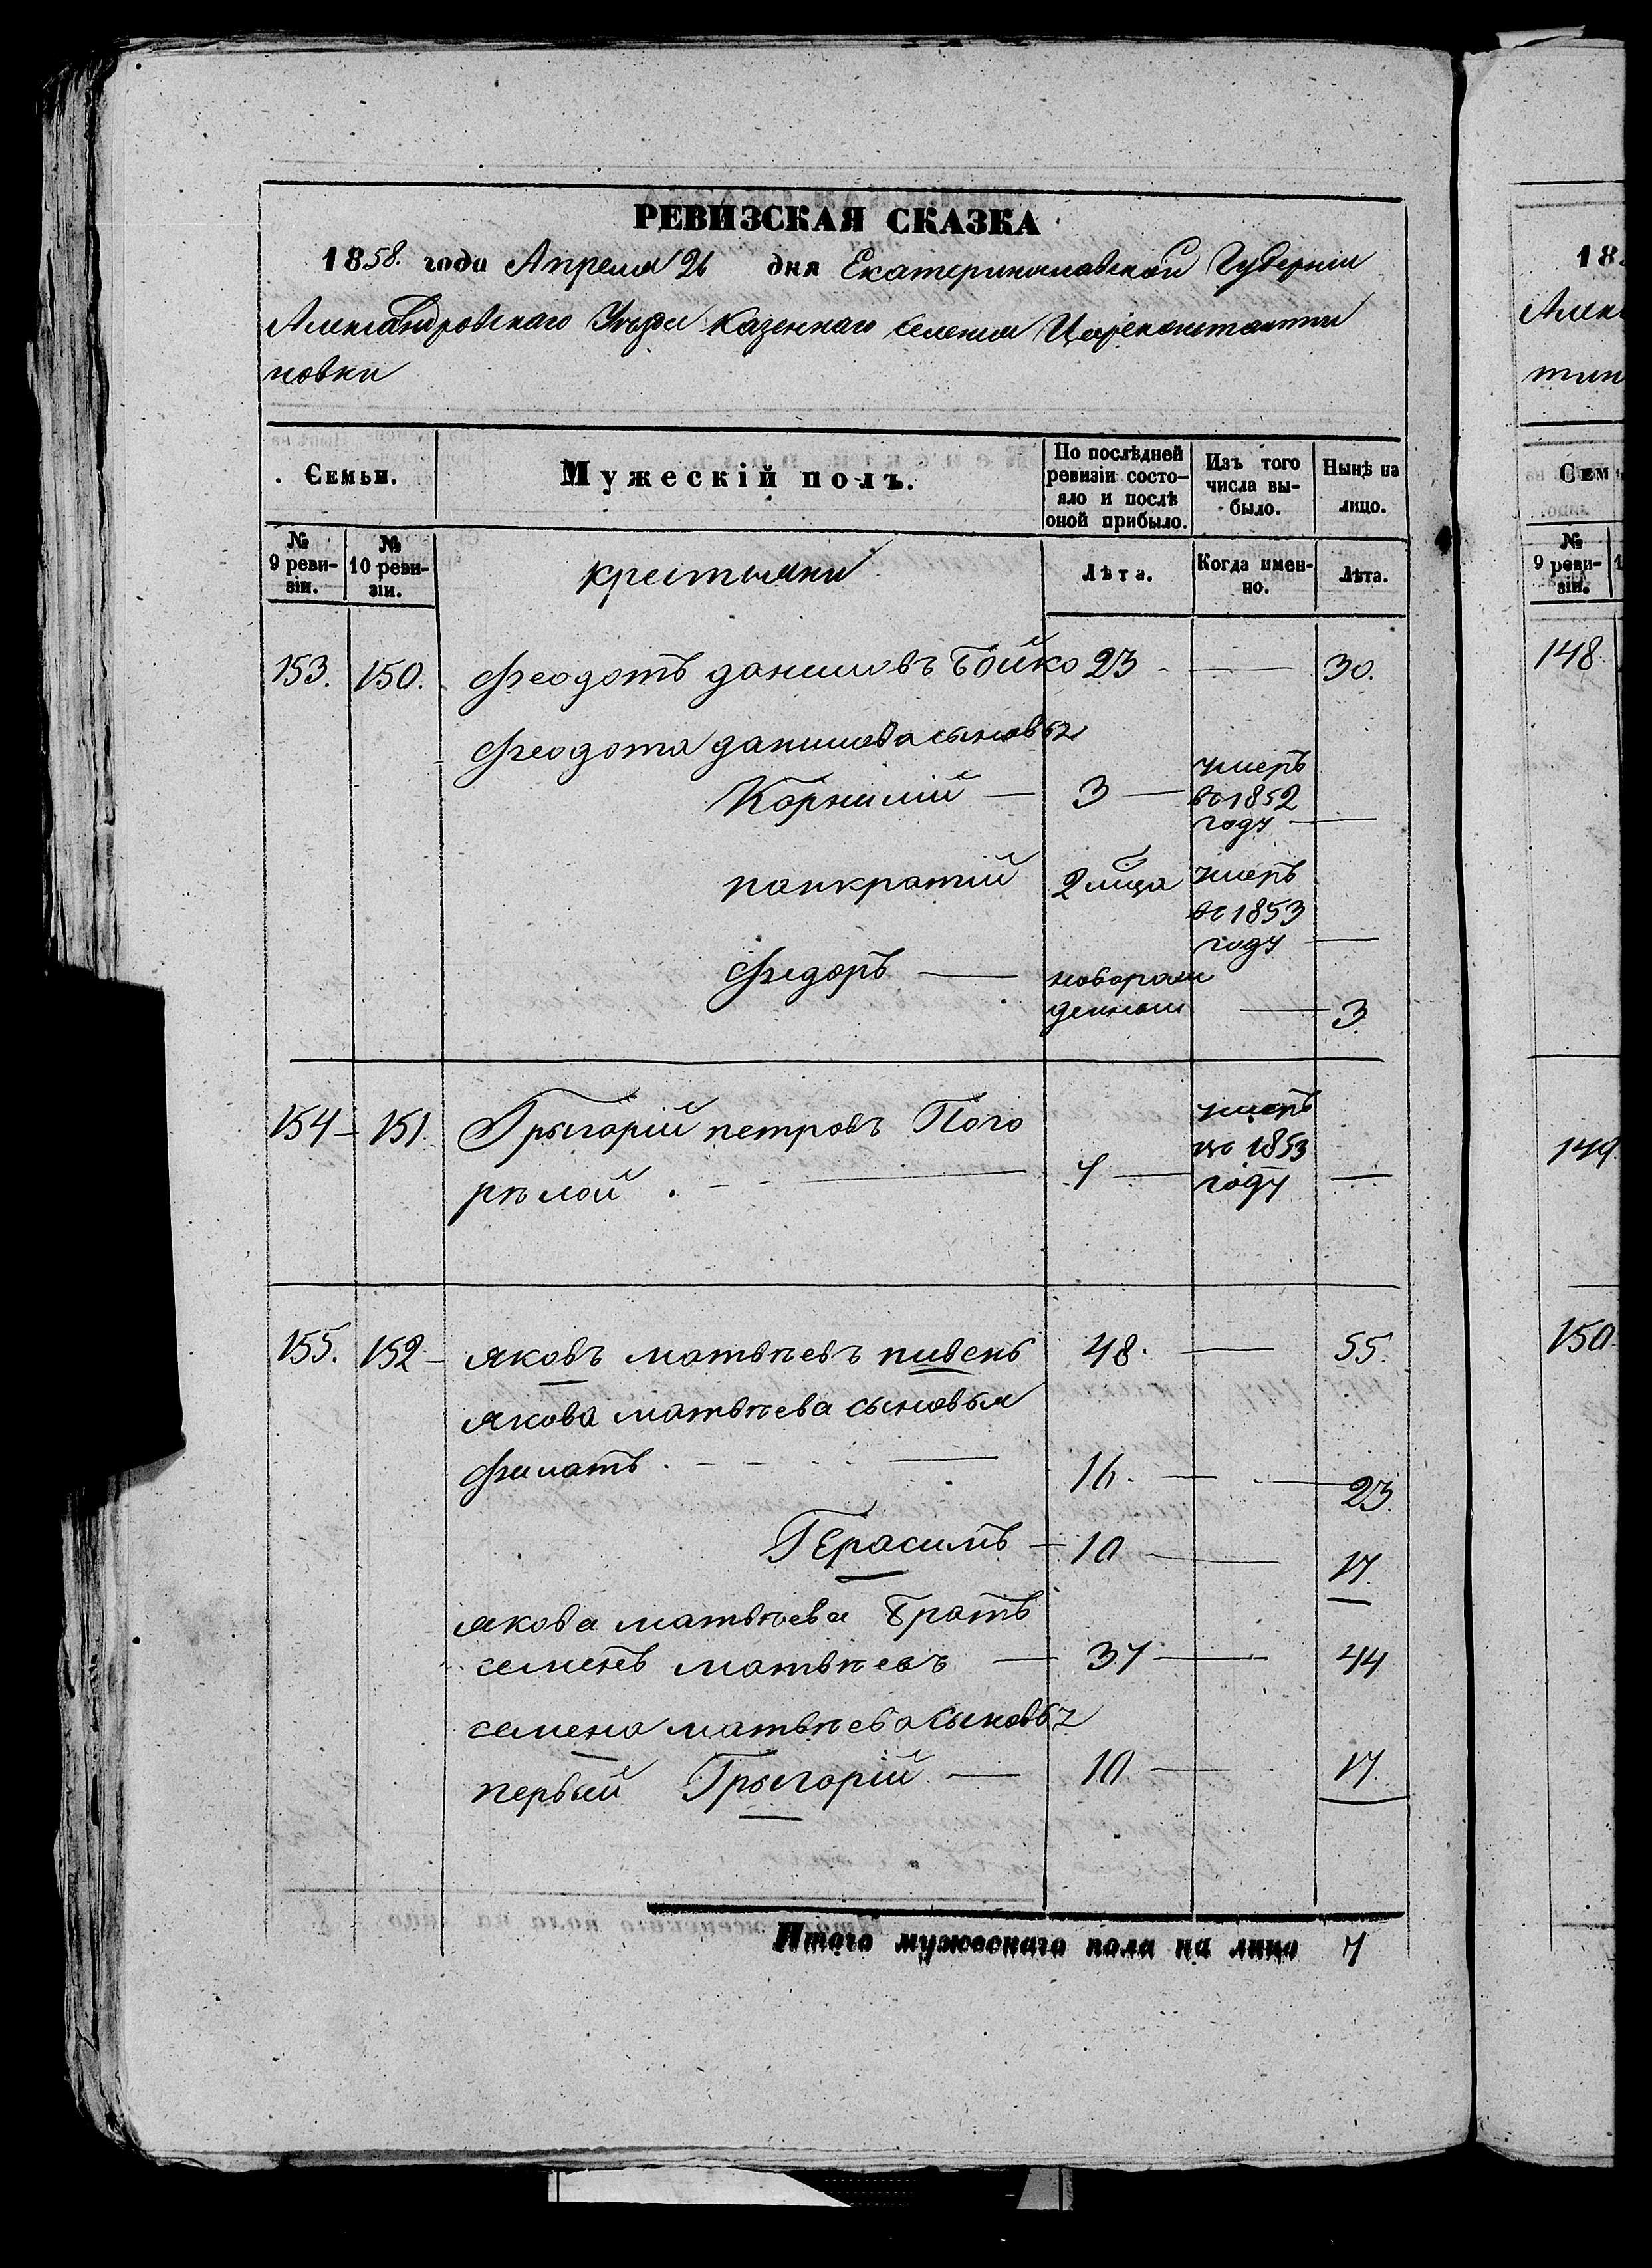 РЕВИЗСКАЯ СКАЗКА
1858. года Апреля 26 дня Екатеринославской Губернии
Александровскаго Уѣзда Казеннаго селения Цареконстанти
новки
Семьи.
Мужескій полъ.
По послѣдней ревизіи состо-
яло и послѣ
оной прибыло.
Изъ того
числа вы-
было.
Нынѣ на
лицо.
№ 9 реви-
зіи.
№ 10 реви-
зіи.
крестьяни
Лѣта.
Когда имен-
но.
Лѣта.
153. 150. Феодотъ даниловъ Бойко 23 — 30.
Феодота данилова сыновья
Корнилій — 3 — умеръ
въ 1852
году —
панкратій 2 мца умеръ
въ 1853
году —
Федоръ — новорож
денный — 3.
154 — 151. Грыгорій петровъ Пого
рѣлой . — 7 — умеръ
въ 1853
году —
155. 152 — яковъ матвѣевъ пивень 48. — 55.
якова матвѣева сыновья
Филатъ . — 16. — 23.
Герасимъ — 10 — 17.
якова матвѣева братъ
семенъ матвѣевъ — 37 — 44
семена матвѣева сыновья
первый Грыгорій — 10 — 17.
Итого мужескаго пола на лицо 7
18
Алек
тин
Сем
№
9 реви-
зіи.
148
149
150.